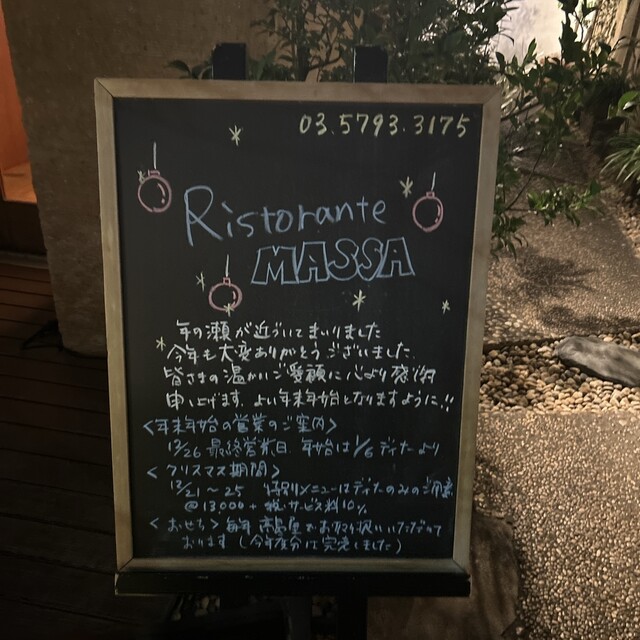 03.5793.3175
Ristorante
MASSA
年の瀬が近づいてまいりました
今年も大変ありがとうございました.
皆さまの温かいご愛顧に心より感謝
申し上げます. よい年末年始となりますように!!
<年末年始の営業のご案内>
12/26 最終営業日. 年始は1/6 ディナーより
<クリスマス期間>
12/21〜25 特別メニューはディナーのみのご用意
@13000+税.サービス料10%
<おせち> 毎年 高島屋でお取り扱いいただいて
おります (今年度分は完売しました)